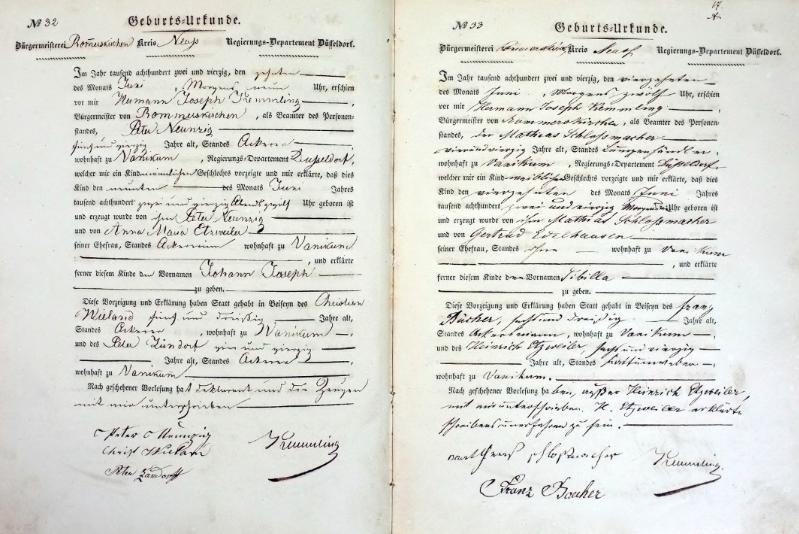 № 32
Geburts-Urkunde.
Bürgermeisterei Rommerskirchen Kreis Neuß Regierungs-Departement Düsseldorf.
Im Jahr tausend achthundert zwei und vierzig, den zehnten
des Monats Juni, Morgens neun Uhr, erschien
vor mir Hermann Joseph Kemmling
Bürgermeister von Rommerskirchen, als Beamter des Personen-
standes, Peter Neunzig
fünf und vierzig Jahre alt, Standes Ackerer
wohnhaft zu Vanikum, Regierungs-Departement Düsseldorf,
welcher mir ein Kind männlichen Geschlechts vorzeigte und mir erklärte, daß dies
Kind den neunten des Monats Juni Jahres
tausend achthundert zwei und vierzig Uhr geboren ist
und erzeugt wurde von ihm Peter Neunzig
und von Anna Maria Etzweiler
seiner Ehefrau, Standes Ackererin wohnhaft zu Vanikum
, und erklärte
ferner diesem Kinde den Vornamen Johann Joseph
zu geben.
Diese Vorzeigung und Erklärung haben Statt gehabt in Beiseyn des Christian
Wieland fünf und dreißig Jahre alt,
Standes Ackerer, wohnhaft zu Vanikum,
und des Peter und vierzig
Jahre alt, Standes Ackerer
wohnhaft zu Vanikum
Nach geschehener Vorlesung hat Deklarant und die Zeugen
mit mir unterschrieben
Peter Neunzig
Christ Wieland
Peter
Kemmling
№ 33
Geburts-Urkunde.
Bürgermeisterei Rommerskirchen Kreis Neuß Regierungs-Departement Düsseldorf.
Im Jahr tausend achthundert zwei und vierzig, den vierzehnten
des Monats Juni, Morgens zwölf Uhr, erschien
vor mir Hermann Joseph Kemmling
Bürgermeister von Rommerskirchen, als Beamter des Personen-
standes, der Mathias Schloßmacher
vierundvierzig Jahre alt, Standes
wohnhaft zu Vanikum, Regierungs-Departement Düsseldorf
welcher mir ein Kind weiblichen Geschlechts vorzeigte und mir erklärte, daß dies
Kind den vierzehnten des Monats Juni Jahres
tausend achthundert zwei und vierzig Morgens Uhr geboren ist
und erzeugt wurde von ihm Mathias Schloßmacher
und von Gertrud Edelhausen
seiner Ehefrau, Standes ohne wohnhaft zu Vanikum
, und erklärte
ferner diesem Kinde den Vornamen Sibilla
zu geben.
Diese Vorzeigung und Erklärung haben Statt gehabt in Beiseyn des Franz
Bücher, sechs und dreißig Jahre alt,
Standes Ackersmann, wohnhaft zu Vanikum
und des Heinrich Etzweiler, sechs und vierzig
Jahre alt, Standes
wohnhaft zu Vanikum.
Nach geschehener Vorlesung haben, außer Heinrich Etzweiler,
mit mir unterschrieben. H. Etzweiler erklärte
schreibensunerfahren zu sein.
Schloßmacher
Kemmling
Franz Bücher